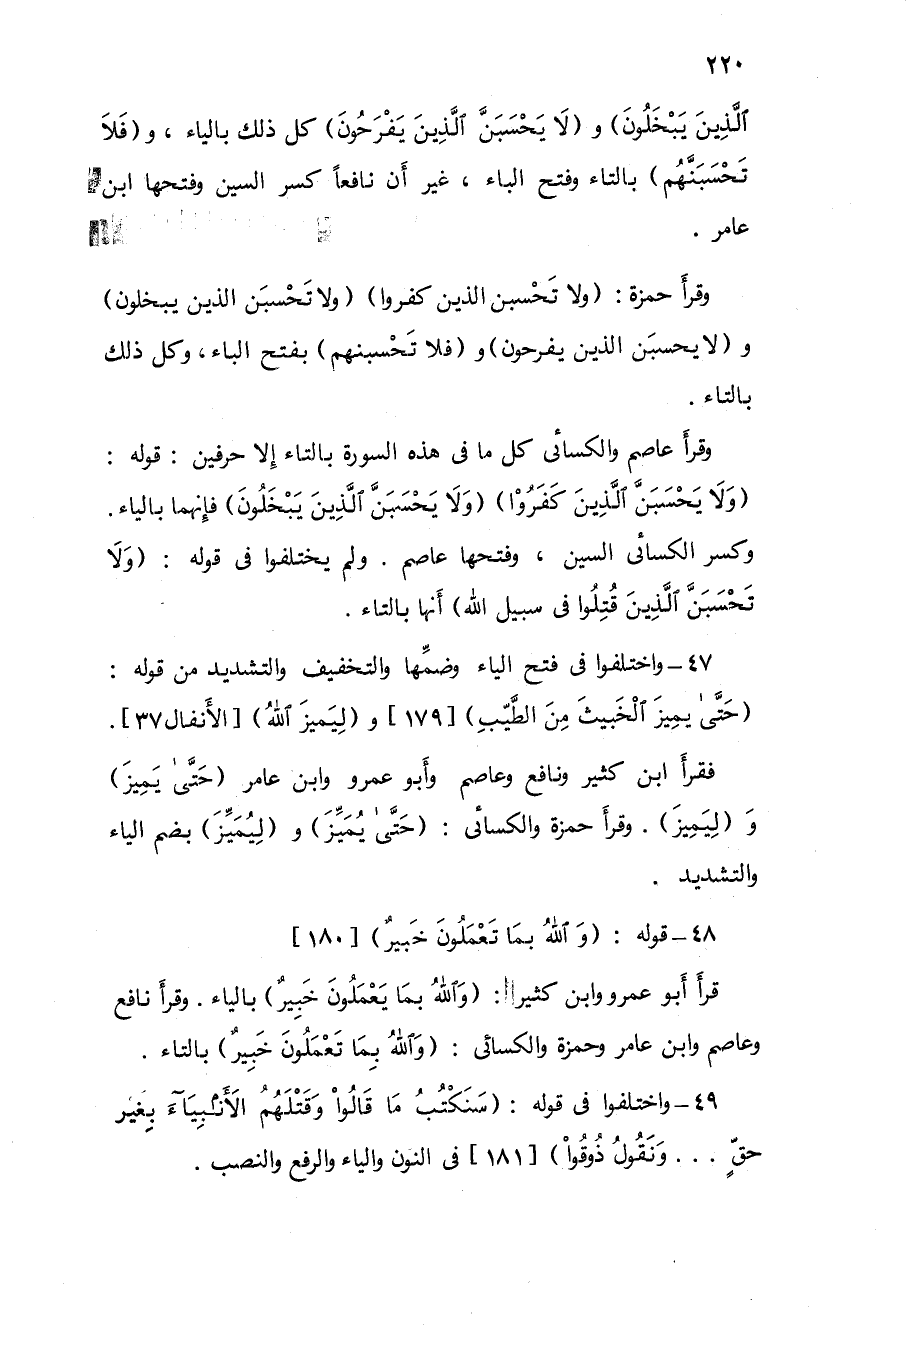 ٢٢٠
ٱلَّذِينَ يَبْخَلُونَ) و (لَا يَحْسَبَنَّ ٱلَّذِينَ يَفْرَحُونَ) كل ذلك بالياء ، و (فَلاَ
تَحْسَبَنَّهُم) بالتاء وفتح الباء ، غير أن نافعاً كسر السين وفتحها ابن
عامر .
وقرأَ حمزة : (ولا تَحْسبن الذين كفروا) (ولا تَحْسبَن الذين يبخلون)
و (لا يحسبَن الذين يفرحون) و (فلا تَحْسبنهم) بفتح الباء، وكل ذلك
بالتاء .
وقرأَ عاصم والكسائى كل ما فى هذه السورة بالتاء إلا حرفين : قوله :
(وَلَا يَحْسَبَنَّ ٱلَّذِينَ كَفَرُوْا) (وَلَا يَحْسَبَنَّ ٱلَّذِينَ يَبْخَلُونَ) فإنهما بالياء.
وكسر الكسائى السين ، وفتحها عاصم . ولم يختلفوا فى قوله : (وَلَا
تَحْسَبَنَّ ٱلَّذِينَ قُتِلُوا فى سبيل الله) أَنها بالتاء .
٤٧ – واختلفوا فى فتح الياء وضمِّها والتخفيف والتشديد من قوله :
(حَتَّىٰ يمِيزَ ٱلْخَبِيثَ مِنَ الطَّيِّبِ) [١٧٩] و (لِيَمِيزَ ٱللهُ) [الأَنفال٣٧].
فقرأَ ابن كثير ونافع وعاصم وأَبو عمرو وابن عامر (حَتَّىٰ يَمِيزَ)
وَ (لِيَمِيزَ) . وقرأَ حمزة والكسائى : (حَتَّىٰ يُمَيِّزَ) و (لِيُمَيِّزَ) بضم الياء
والتشديد .
٤٨ – قوله : (وَ ٱللهُ بِمَا تَعْمَلُونَ خَبِيرٌ) [١٨٠]
قرأَ أَبو عمرو وابن كثير : (وَٱللهُ بِمَا يَعْمَلُونَ خَبِيرٌ) بالياء . وقرأَ نافع
وعاصم وابن عامر وحمزة والكسائى : (وَٱللهُ بِمَا تَعْمَلُونَ خَبِيرٌ) بالتاء .
٤٩ – واختلفوا فى قوله : (سَنَكْتُبُ مَا قَالُواْ وَقَتْلَهُمُ الأَنْبِيَآءَ بِغَيْرِ
حقّ . . . وَنَقُولُ ذُوقُواْ) [١٨١] فى النون والياء والرفع والنصب .